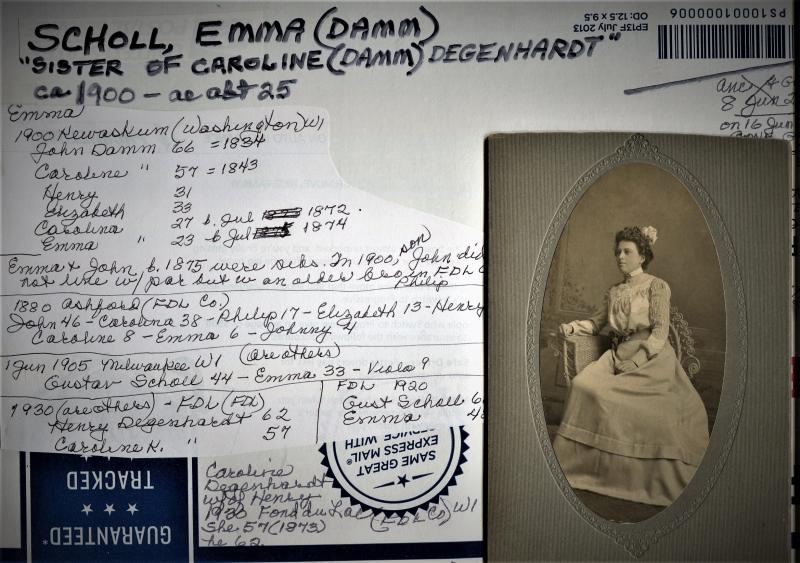 SCHOLL, EMMA (DAMM)
"SISTER OF CAROLINE (DAMM) DEGENHARDT"
ca 1900 - ae abt 25
PS10001000006
EP13F July 2013
OD: 12.5 x 9.5
8 Jun 2
on 16 Jun
Emma
1900 Kewaskum (Washington) WI
John Damm 66 = 1834
Caroline " 57 = 1843
Henry 31
Elizabeth 33
Carolina 27 b. Jul 1872.
Emma " 23 b Jul 1874
Emma & John b. 1875 were sibs. In 1900, son John did
not live w/ par but w an older bro in FDL
Philip
1880 Ashford (FDL Co.)
John 46 - Carolina 38 - Philip 17 - Elizabeth 13 - Henry
Caroline 8 - Emma 6 - Johnny 4
1 Jun 1905 Milwaukee WI (are others)
Gustav Scholl 44 - Emma 33 - Viola 9
1930 (are others) - FDL (FDL)
Henry Degenhardt 62
Caroline K. " 57
FDL 1920
Gust Scholl 6
Emma 4
Caroline
Degenhardt
w/of Henry
1930 Fond du Lac (FDL Co) WI
She 57 (1873)
he 62
SAME GREAT
EXPRESS MAIL®
SERVICE WITH
GUARANTEED*
★ ★ ★
TRACKED